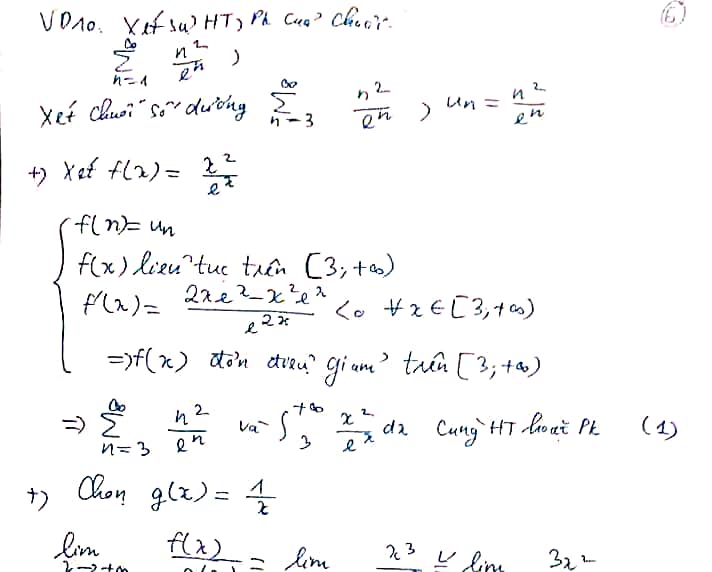 VD10. Xét sự HT, PK của chuỗi. (6)
∞ Σ n=1 n²/eⁿ ,
Xét chuỗi số dương ∞ Σ n=3 n²/eⁿ , un = n²/eⁿ
+) Xét f(x) = x²/eˣ
f(n) = un
f(x) liên tục trên [3; +∞)
f'(x) = (2xeˣ - x²eˣ)/e²ˣ < 0 ∀x ∈ [3, +∞)
=> f(x) đơn điệu giảm trên [3; +∞)
=> ∞ Σ n=3 n²/eⁿ và ∫₃^+∞ x²/eˣ dx Cùng HT hoặc PK (1)
+) Chọn g(x) = 1/x
lim x→+∞ f(x)/g(x) = lim x³ = lim 3x²